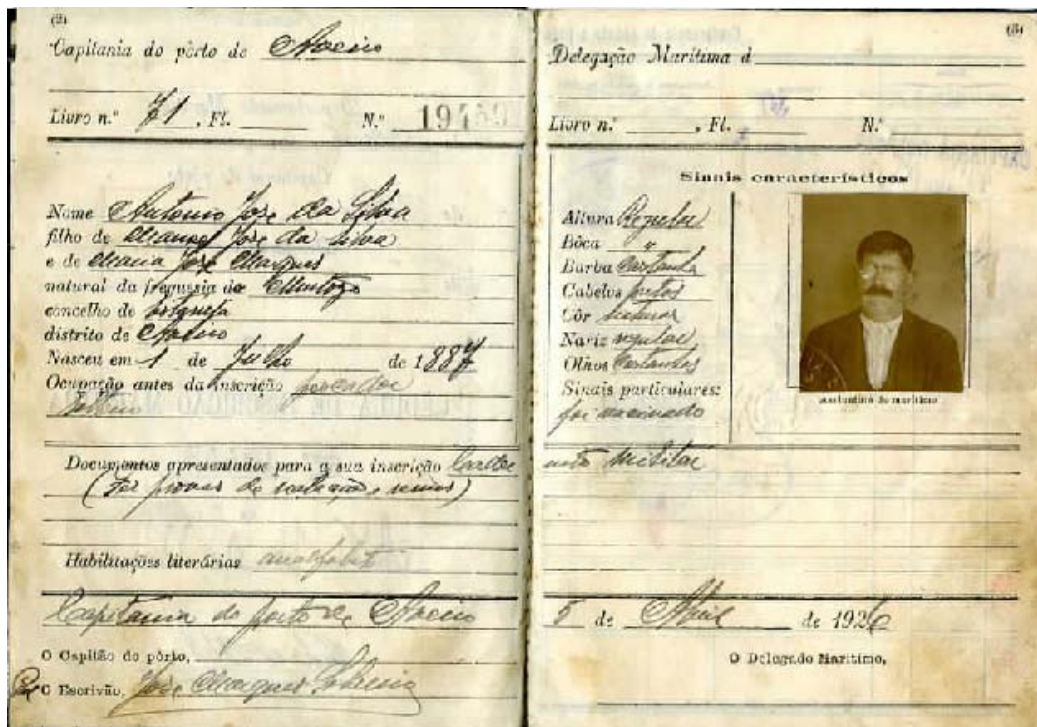 (2)
Capitania do pôrto de Aveiro
Livro n.º 71, Fl. N.º 19459
Nome Antonio José da Silva
filho de Manuel José da Silva
e de Maria José Marques
natural da freguesia da Murtosa
concelho de Estarreja
distrito de Aveiro
Nasceu em 1 de Julho de 1887
Ocupação antes da inscrição pescador
Documentos apresentados para a sua inscrição
(fez provas de natação e remos)
Habilitações literárias analfabeto
Capitania do porto de Aveiro
O Capitão do pôrto,
O Escrivão, José Marques
(3)
Delegação Marítima d
Livro n.º , Fl. N.º
Sinais característicos
Altura Regular
Bôca "
Barba Castanha
Cabelos pretos
Côr natural
Nariz regular
Olhos Castanhos
Sinais particulares:
foi vacinado
Assinatura do marítimo
militar
5 de Abril de 1926
O Delegado Marítimo,